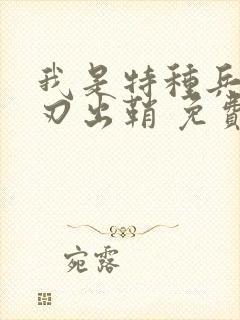 我是特種兵
刃出鞘 免費
宛露